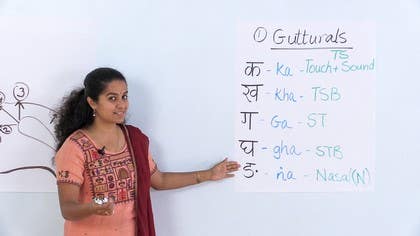 ① Gutturals
TS
क - Ka - Touch + Sound
ख - kha - TSB
ग - Ga - ST
घ - gha - STB
ङ - ṅa - Nasal (N)
3
2